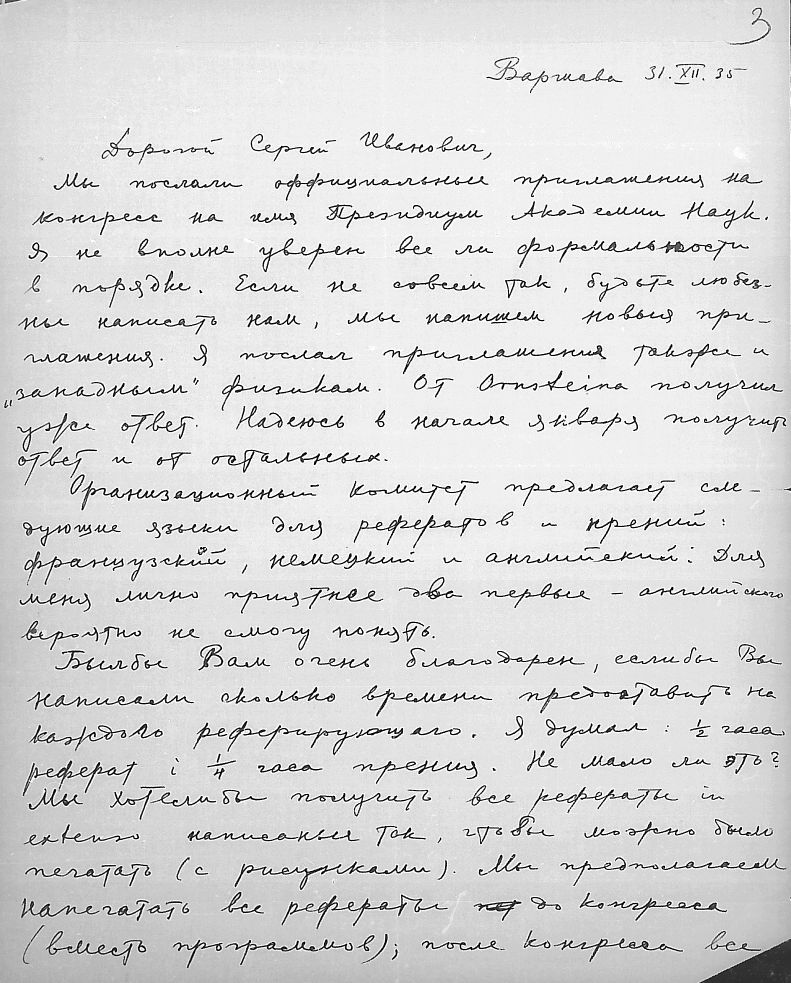 3
Варшава 31.XII.35
Дорогой Сергей Иванович,
Мы послали оффициальные приглашения на
конгресс на имя Президиум Академии Наук.
Я не вполне уверен все ли формальности
в порядке. Если не совсем так, будьте любез-
ны написать нам, мы напишем новыя при-
глашения. Я послал приглашения также и
„западным" физикам. От Ornsteina получил
уже ответ. Надеюсь в начале января получить
ответ и от остальных.
Организационный комитет предлагает сле-
дующие языки для рефератов и прений:
французский, немецкий и английский. Для
меня лично приятнее два первые – английского
вероятно не смогу понять.
Былбы Вам очень благодарен, еслибы Вы
написали сколько времени предоставить на
каждого реферирующаго. Я думал: ½ часа
реферат i ¼ часа прения. Не мало ли эть?
Мы хотелибы получить все рефераты in
extenso написаныя так, чтобы можно было
печатать (с рисунками). Мы предполагаем
напечатать все рефераты до конгресса
(вместь программов); после конгресса все